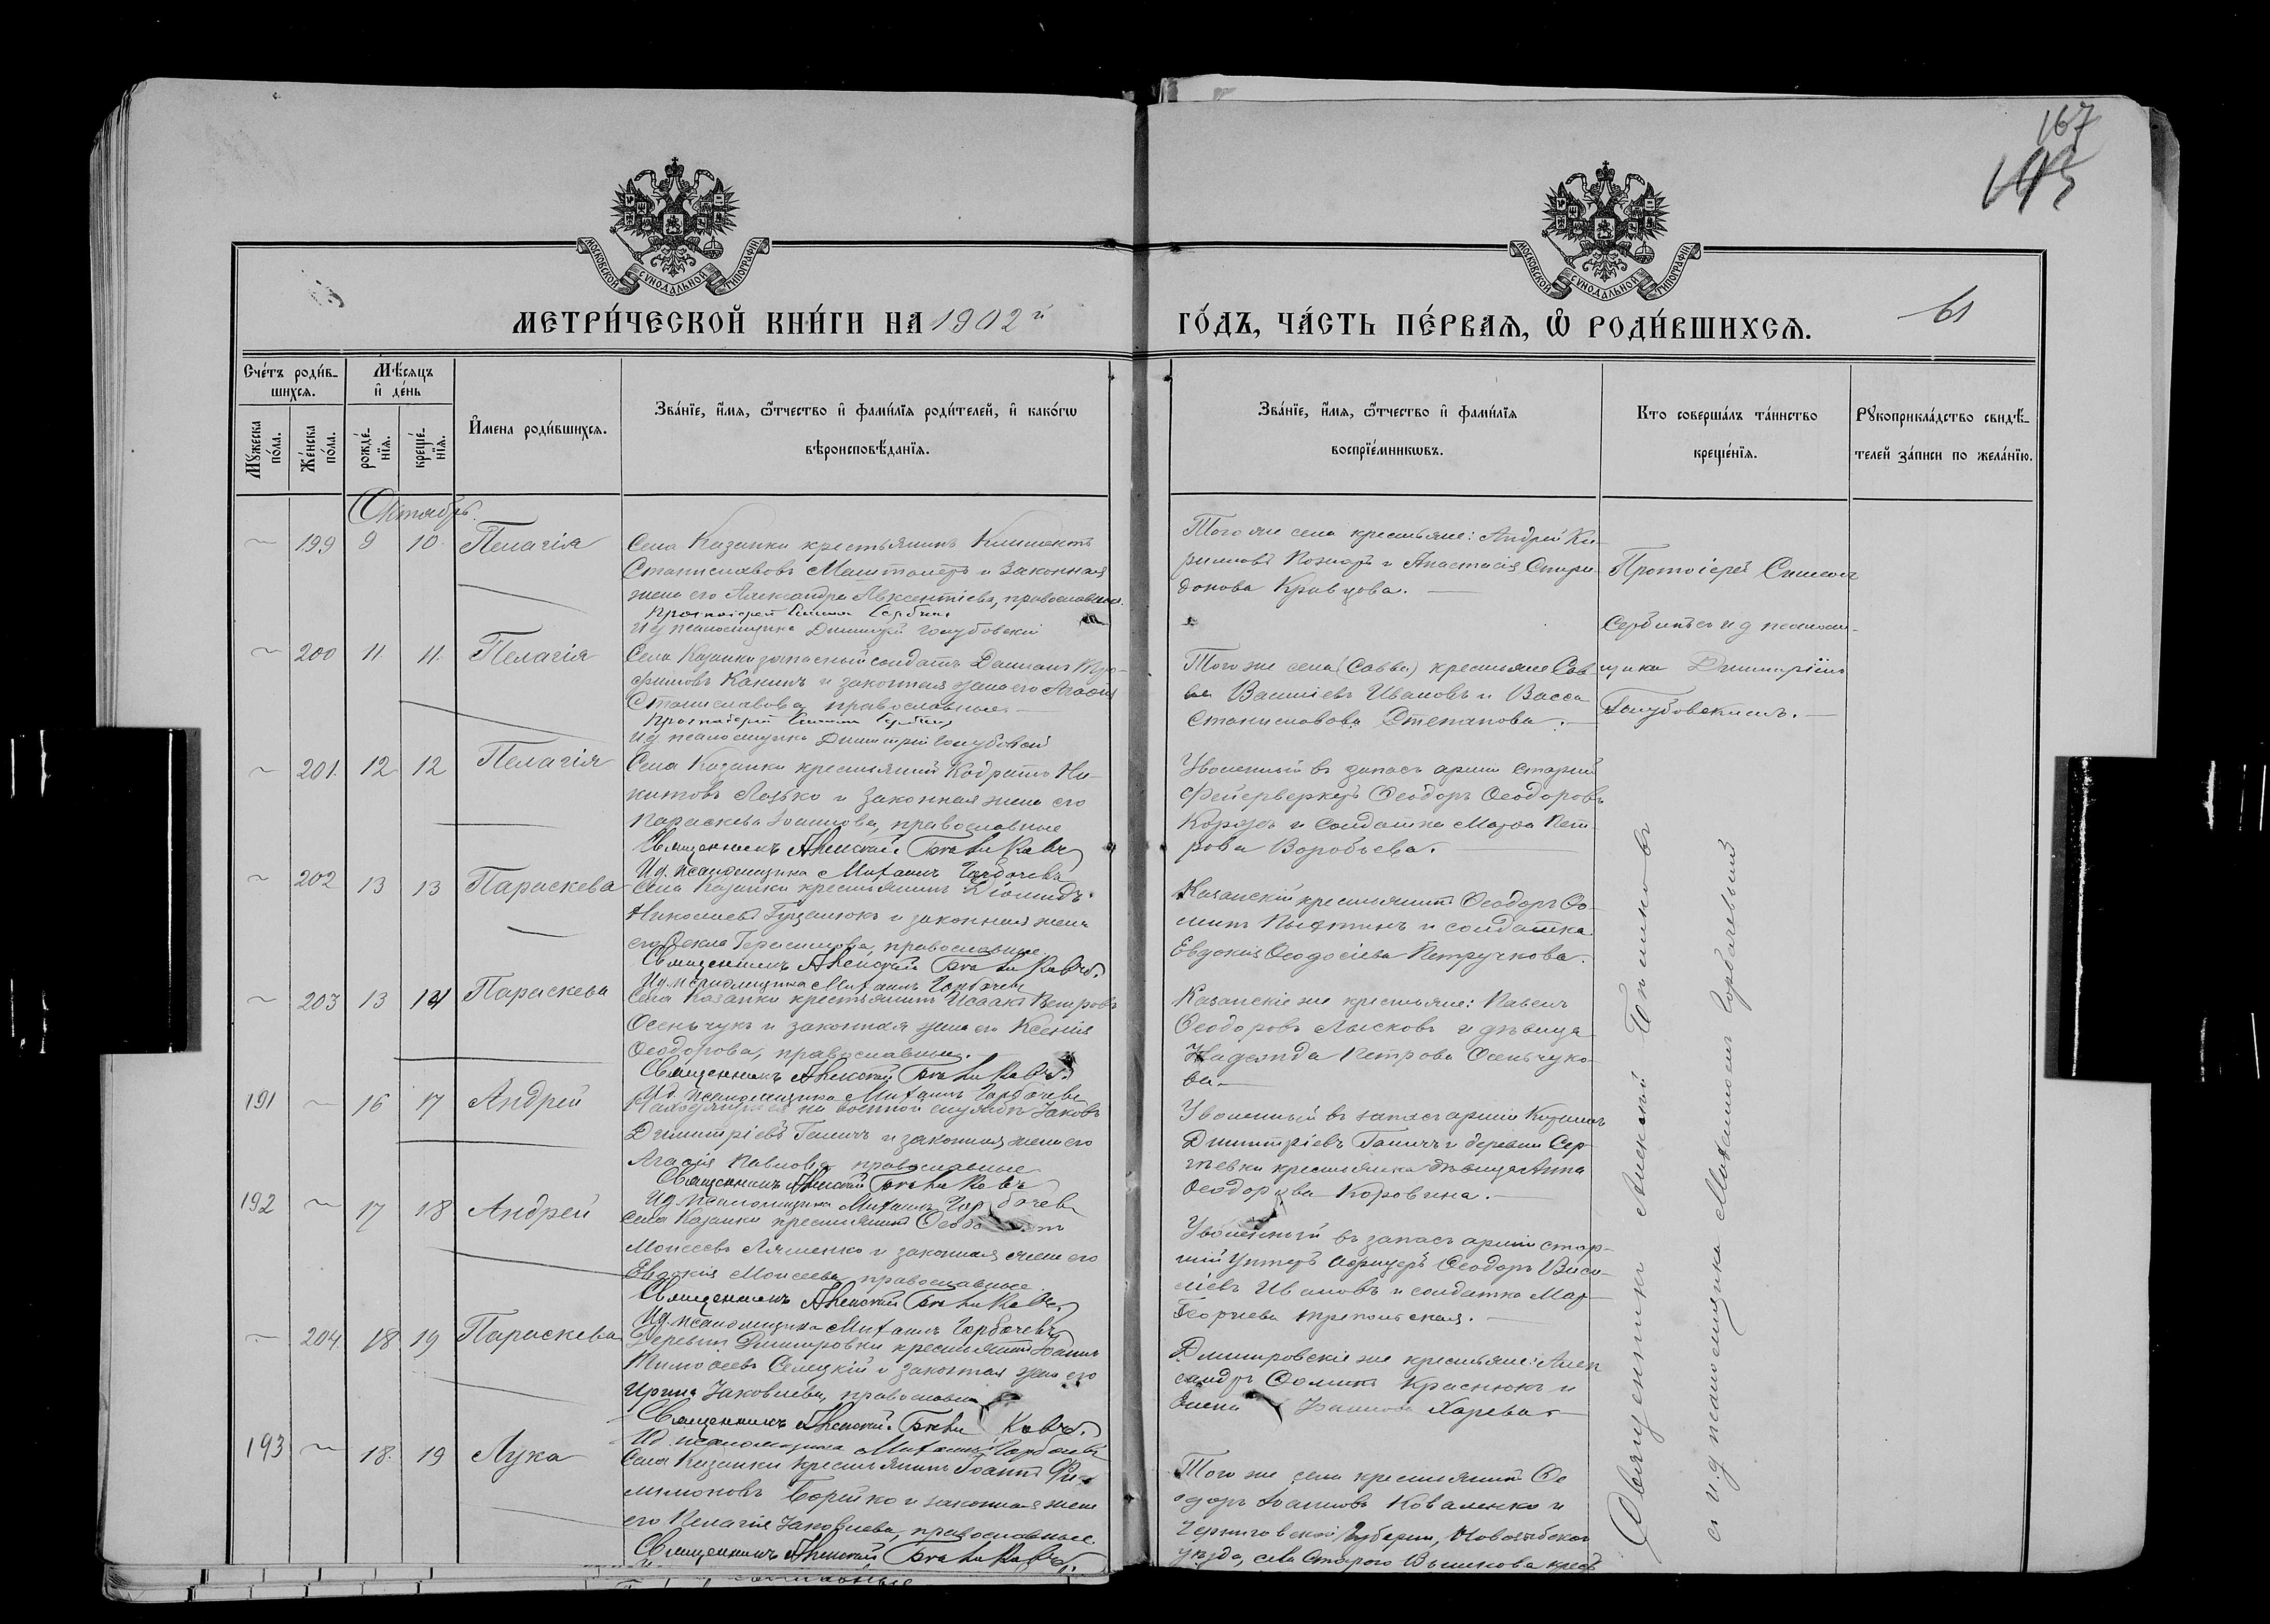 167
МОСКОВСКОЙ СУНОДАЛЬНОЙ ТИПОГРАФІИ
МОСКОВСКОЙ СУНОДАЛЬНОЙ ТИПОГРАФІИ
МЕТРИ́ЧЕСКОЙ КНИ́ГИ НА 1902й
ГО́ДЪ, ЧА́СТЬ ПЕ́РВАѦ, Ѽ РОДИ́ВШИХСѦ.
61
Сче́тъ роди́в-
шихсѧ.
Мꙋжеска по́ла.
Же́нска по́ла.
Мѣ́сѧцъ
и҆ де́нь
рожде́-
нїѧ.
креще́-
нїѧ.
И҆мена роди́вшихсѧ.
Зва́нїе, и҆́мѧ, ѻ҆́тчество и҆ фами́лїѧ роди́телей, и҆ како́гѡ
вѣроисповѣ́данїѧ.
Зва́нїе, и҆́мѧ, ѻ҆́тчество и҆ фами́лїѧ
воспрїе́мникѡвъ.
Кто соверша́лъ та́инство
креще́нїѧ.
Рꙋкоприкла́дство свидѣ́-
телей за́писи по жела́нїю.
Октябрь.
199 9 10 Пелагія
Села Казанки крестьянинъ Климентъ
Станиславовъ и законная
жена его Александра Авксентіева, православные.
Протоіерей Симеонъ Сербинъ
И д псаломщика Димитрій Голубовскій
Того же села крестьяне: Андрей Ки-
рилловъ и Анастасія Спири-
донова Кравцова.
Протоіерей Симеонъ
Сербинъ с и д псалом-
щика Димитріемъ
Голубовскимъ.
200 11 11 Пелагія
Села Казанки запасный солдатъ
Канинъ и законная жена его Агафія
Станиславова, православные.
Протоіерей Симеонъ Сербинъ
И д псаломщика Димитрій Голубовскій
Того же села (Савва) крестьяне Сав-
ва Василіевъ Ивановъ и Васса
Станиславова Степанова.
201. 12 12 Пелагія
Села Казанки крестьянинъ Кодратъ Ни-
китовъ Лозько и законная жена его
Параскева Іоаннова, православные
Священникъ Алексій
Ид. псаломщика Михаилъ Горбачевъ
Уволенный въ запасъ арміи старшій
фейерверкеръ Ѳеодоръ Ѳеодоровъ
и солдатка Марѳа Пет-
рова Воробьева.
202 13 13 Параскева
Села Казанки крестьянинъ Діомидъ
Николаевъ и законная жена
его Ѳекла Герасимова, православные
Священникъ Алексій
Ид. псаломщика Михаилъ Горбачевъ
Казанскій крестьянинъ Ѳеодоръ Ѳо-
минъ и солдатка
Евдокія Ѳеодосіева Петручкова.
203 13 14 Параскева
Села Казанки крестьянинъ Исаакъ Петровъ
Осеньчукъ и законная жена его Ксенія
Ѳеодорова, православные.
Священникъ Алексій
Ид. псаломщика Михаилъ Горбачевъ
Казанскіе же крестьяне: Павелъ
Ѳеодоровъ Лысковъ и дѣвица
Надежда Петрова Осеньчуко-
ва
191 16 17 Андрей
Находящійся на военной службѣ Іаковъ
Димитріевъ Ганичъ и законная жена его
Агафія Павлова, православные
Священникъ Алексій
Ид. псаломщика Михаилъ Горбачевъ
Уволенный въ запасъ арміи
Димитріевъ Ганичъ и деревни Сер-
гѣевки крестьянка дѣвица Анна
Ѳеодорова Коровина.
192 17 18 Андрей
Села Казанки крестьянинъ
Моисеевъ Ляшенко и законная жена его
Евдокія Моисеева, православные
Священникъ Алексій
Ид. псаломщика Михаилъ Горбачевъ
Уволенный въ запасъ арміи стар-
шій Унтеръ Офицеръ Ѳеодоръ Васи-
ліевъ Ивановъ и солдатка
Георгіева
204. 18 19 Параскева
Деревни Димировки крестьянинъ Іоаннъ
Тимоѳеевъ Селецкій и законная жена его
Ирина Іаковлева, православные
Священникъ Алексій
Ид. псаломщика Михаилъ Горбачевъ
Димировскіе же крестьяне: Алек-
сандръ Ѳоминъ Краснюкъ и
Елена Іоаннова Харева
193 18. 19 Лука
Села Казанки крестьянинъ Іоаннъ Фи-
лимоновъ Борейко и законная жена
его Пелагія Іаковлева, православные
Священникъ Алексій
Того же села крестьянинъ Ѳе-
одоръ Іоанновъ Коваленко и
Черниговской Губерніи, Новозыбского
уѣзда, села Старого Вышкова крест
Священникъ Алексій
с и.д псаломщика Михаиломъ Горбачевымъ